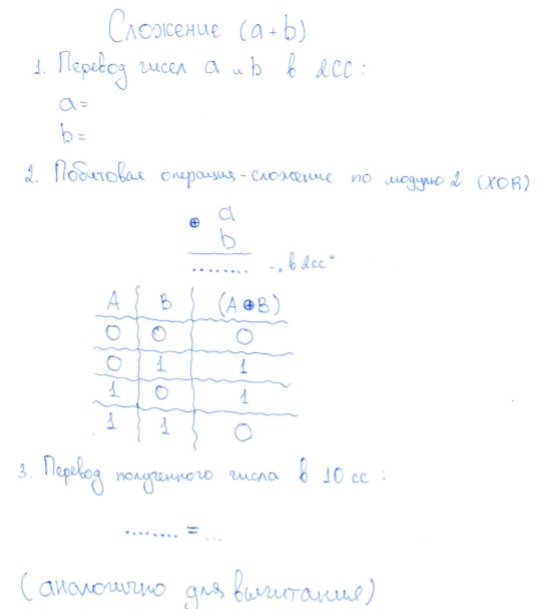 Сложение (a+b)
1. Перевод чисел a и b в 2СС:
a=
b=
2. Побитовая операция - сложение по модулю 2 (XOR)
⊕ a
b
........ - "в 2сс"
A B (A⊕B)
0 0 0
0 1 1
1 0 1
1 1 0
3. Перевод полученного числа в 10 сс:
........ = ...
(аналогично для вычитания)